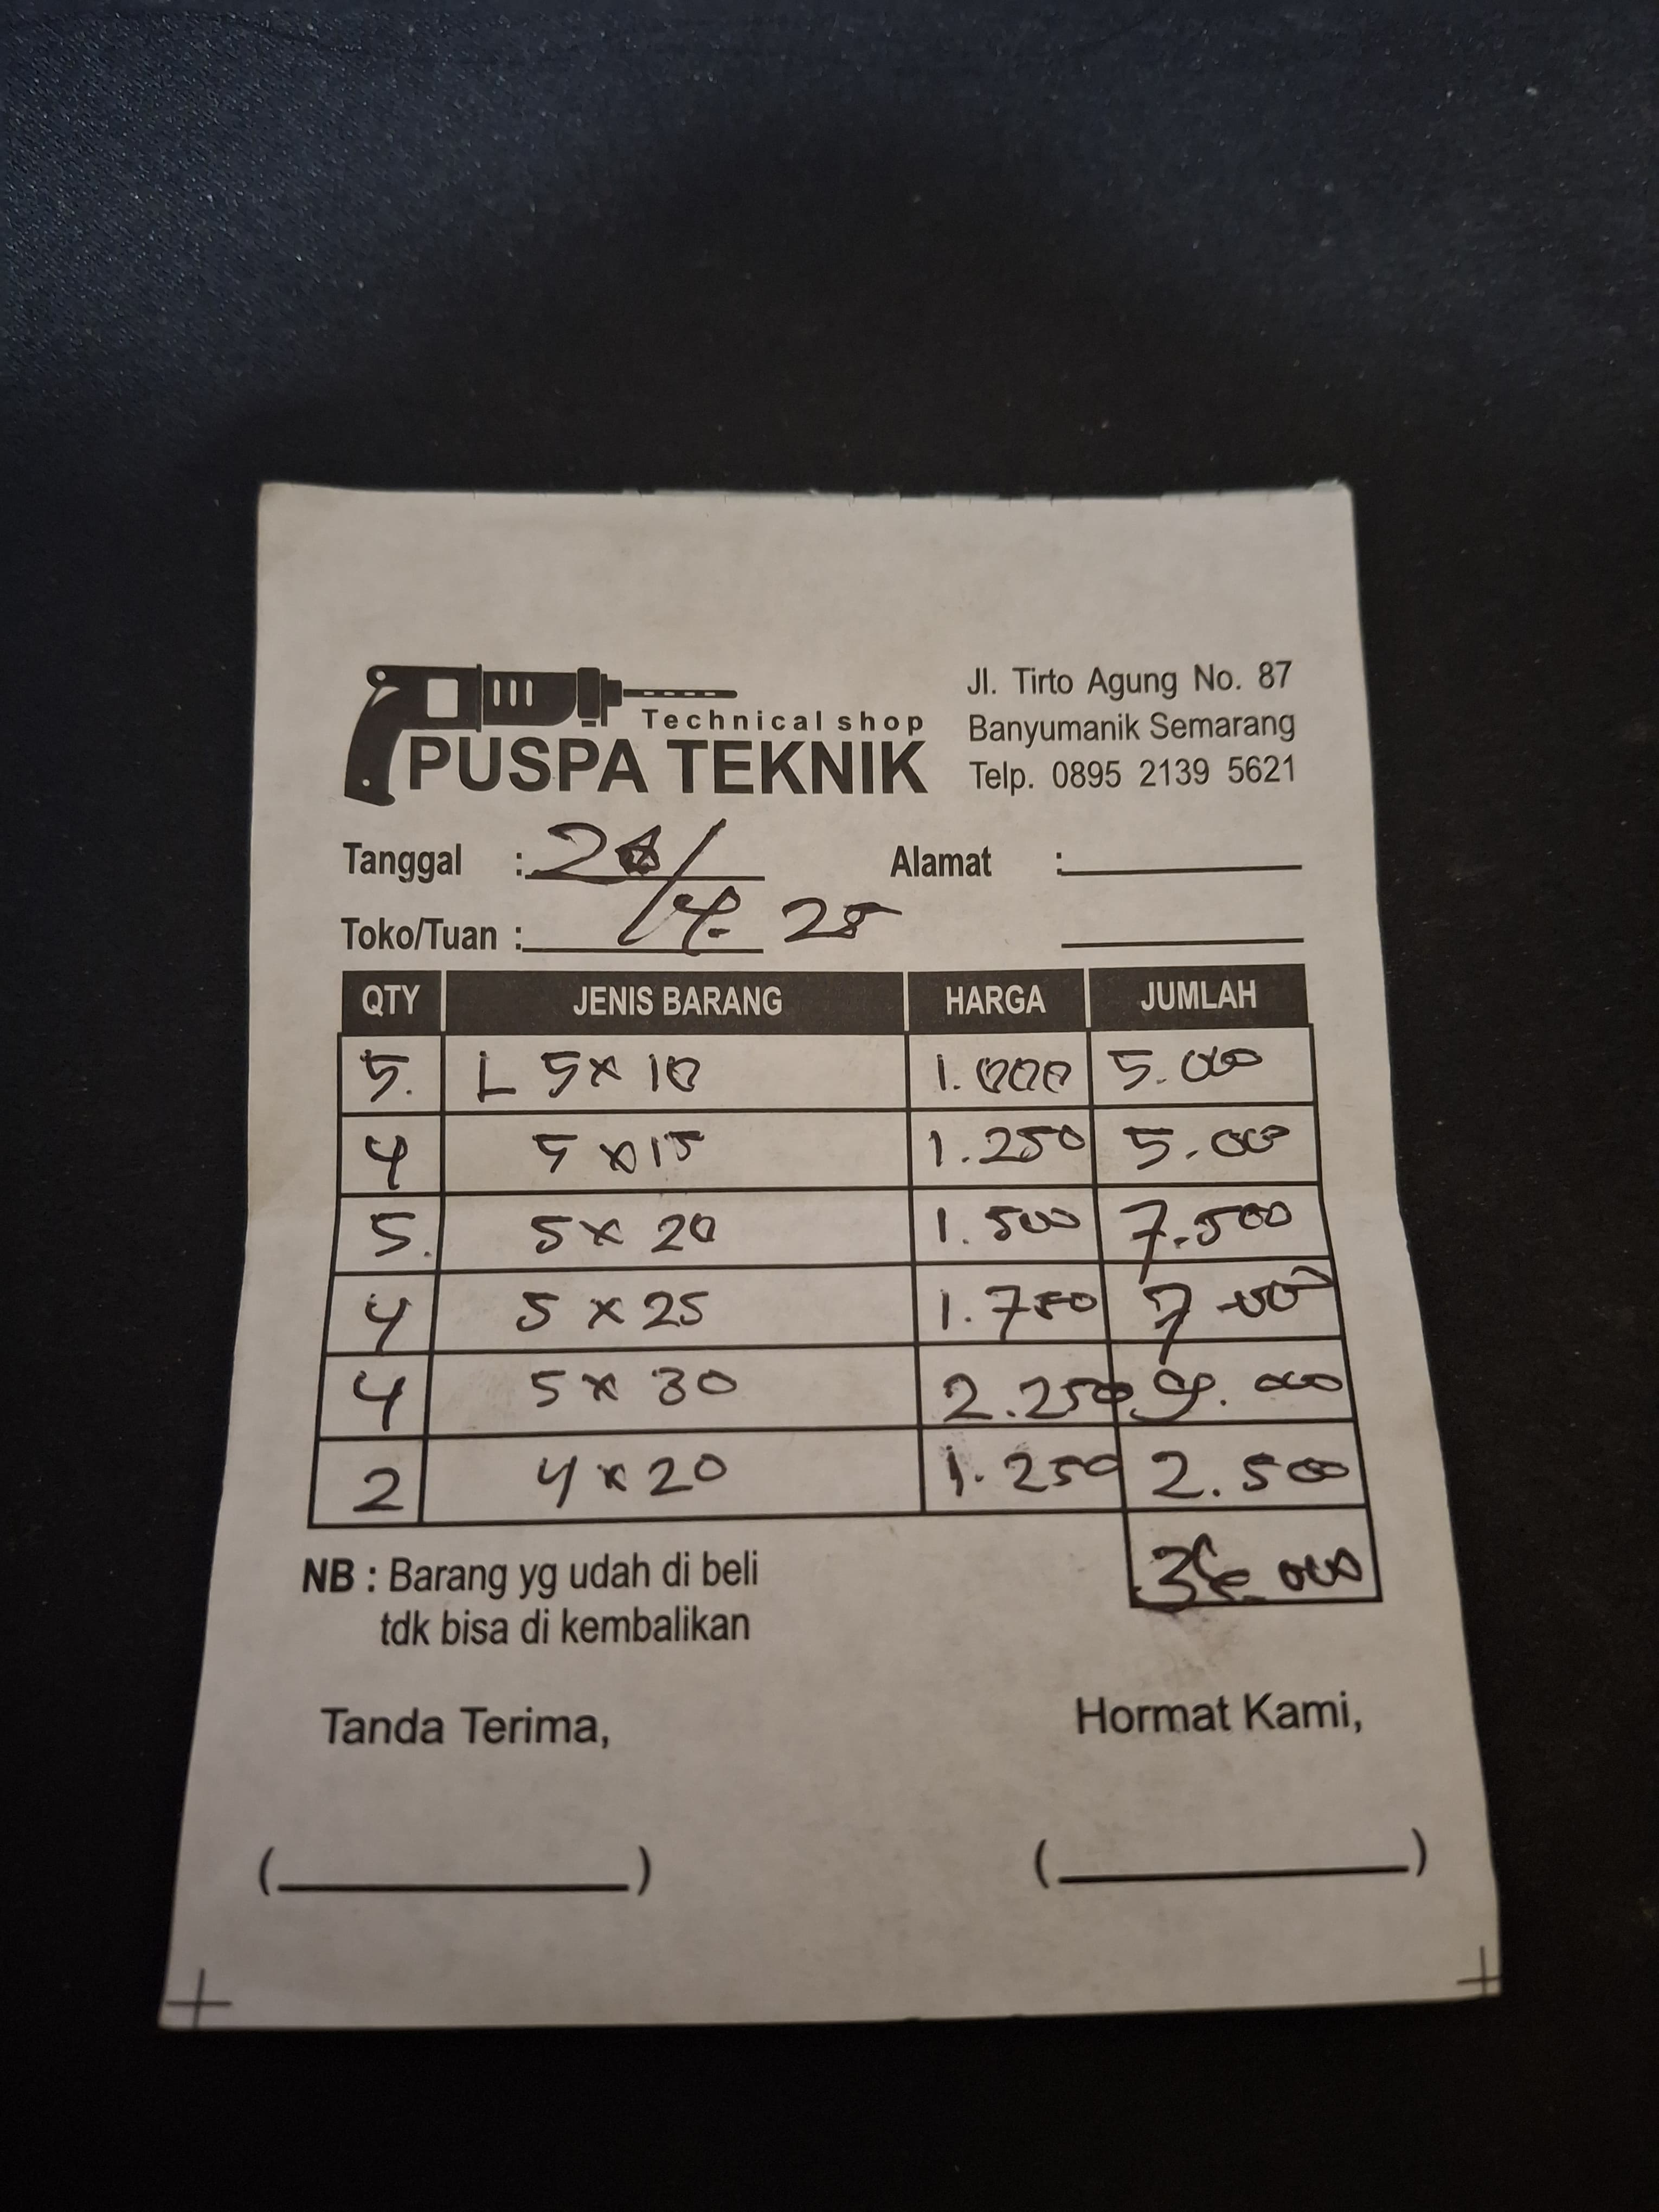 Technical shop
PUSPA TEKNIK
Jl. Tirto Agung No. 87
Banyumanik Semarang
Telp. 0895 2139 5621
Tanggal : / 4. 25
Alamat :
Toko/Tuan :
QTY JENIS BARANG HARGA JUMLAH
5. L 5x10 1.000 5.000
4 5x15 1.250 5.000
5. 5x20 1.500 7.500
4 5x25 1.750 7.000
4 5x30 2.250 9.000
2 4x20 1.250 2.500
36.000
NB : Barang yg udah di beli
tdk bisa di kembalikan
Tanda Terima,
Hormat Kami,
(__________) (__________)